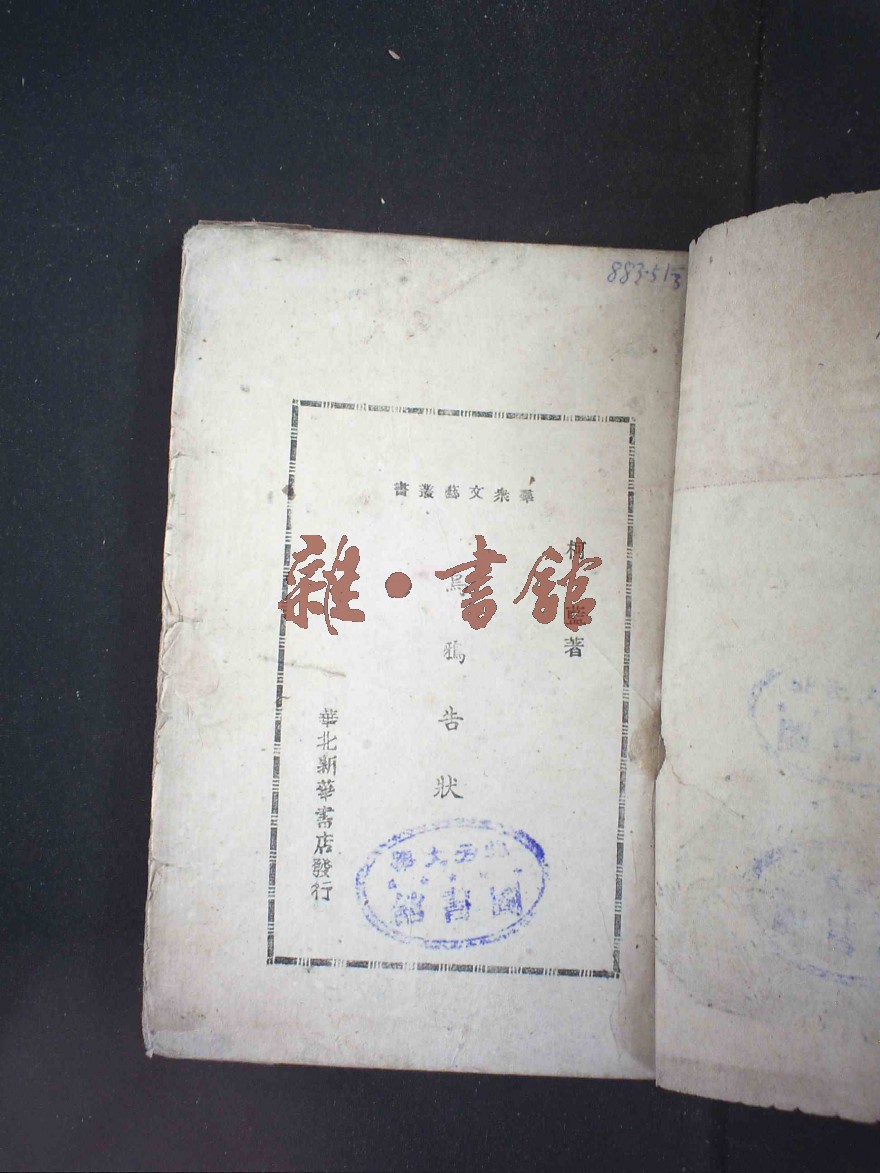 883·51
羣衆文藝叢書
柯藍著
烏鴉告狀
華北新華書店發行
雜·書館
北方大學
圖書館